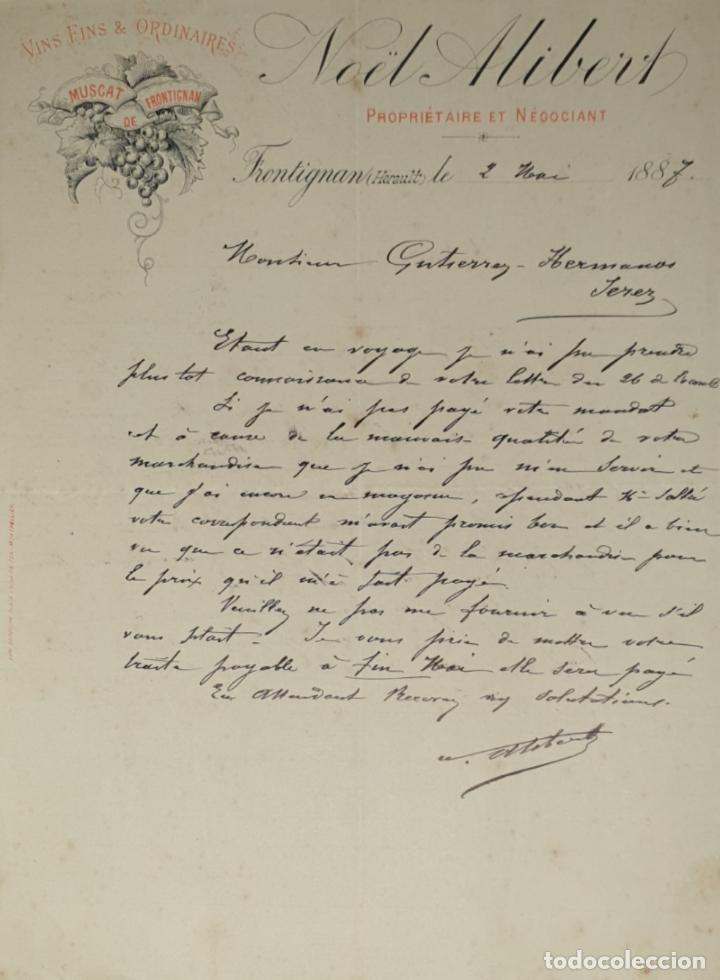 VINS FINS & ORDINAIRES
MUSCAT
DE
FRONTIGNAN
Noël Alibert
PROPRIÉTAIRE ET NÉGOCIANT
Frontignan (Herault) le 2 Mai 1887.
Monsieur Gutierrez Hermanos
Jerez
Etant en voyage je n'ai pu prendre
plus tot connaissance de votre lettre du 26
Si je n'ai pas payé votre mandat
et à cause de la mauvaise qualitée de votre
marchandise que je n'ai pu m'en servir et
que j'ai encore en magasin, cependant
votre correspondant m'avait promis bon et il a bien
vu que ce n'était pas de la marchandise pour
le prix qu'il m'a fait payé.
Veuillez ne pas me fournir à vue s'il
vous plait. Je vous prie de mettre votre
traite payable à fin Mai elle sera payé
En Attendant Recevez mes salutations.
n. Alibert
todocoleccion.net